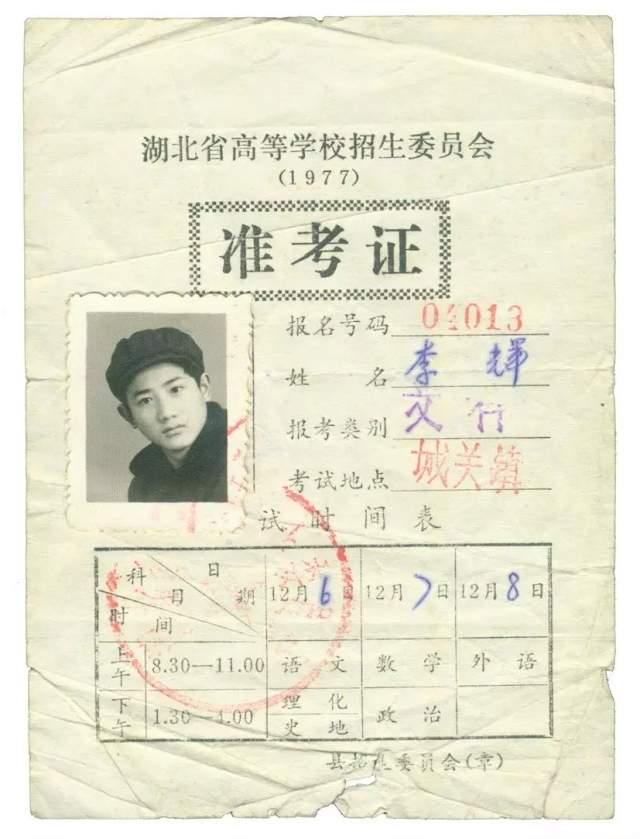 湖北省高等学校招生委员会
(1977)
准考证
报名号码 04013
姓 名 李 辉
报考类别 文
考试地点 城关镇
试时间表
科目 日期 时间 12月6日 12月7日 12月8日
上午 8.30—11.00 语文 数学 外语
下午 1.30—4.00 理化 政治
史地
县招生委员会(章)